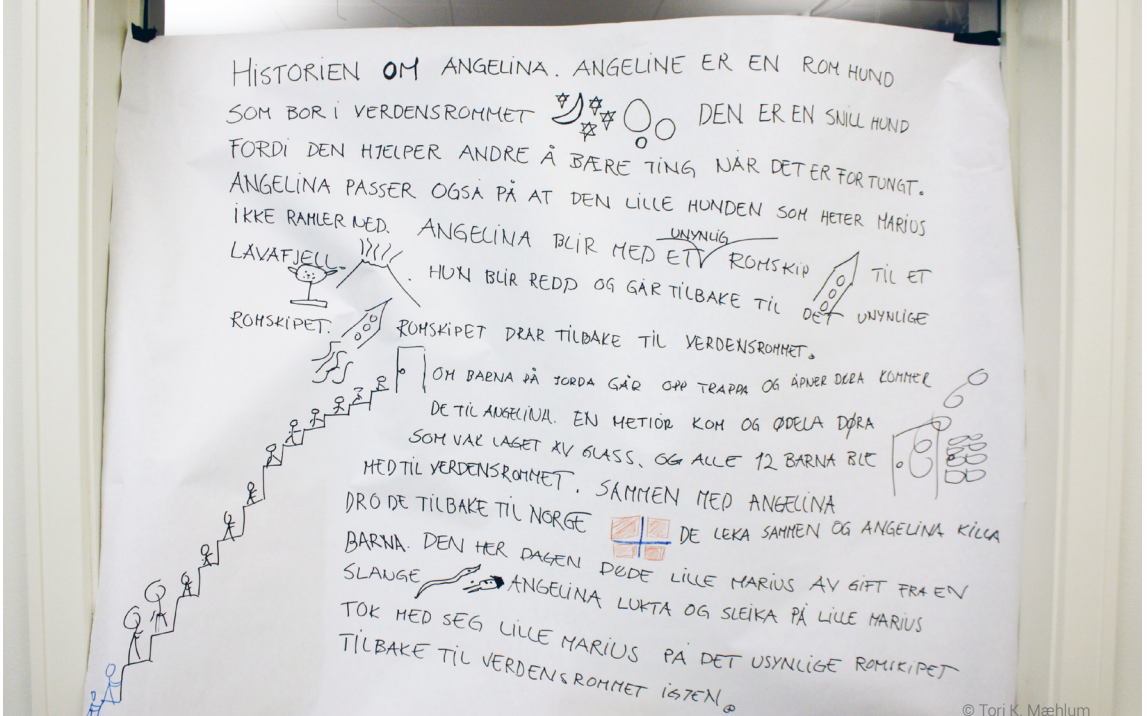 HISTORIEN OM ANGELINA. ANGELINE ER EN ROM HUND
SOM BOR I VERDENSROMMET DEN ER EN SNILL HUND
FORDI DEN HJELPER ANDRE Å BÆRE TING NÅR DET ER FOR TUNGT.
ANGELINA PASSER OGSÅ PÅ AT DEN LILLE HUNDEN SOM HETER MARIUS
IKKE RAMLER NED. ANGELINA BLIR MED ET UNYNLIG ROMSKIP TIL ET
LAVAFJELL. HUN BLIR REDD OG GÅR TILBAKE TIL DET UNYNLIGE
ROMSKIPET. ROMSKIPET DRAR TILBAKE TIL VERDENSROMMET.
OM BARNA PÅ JORDA GÅR OPP TRAPPA OG ÅPNER DØRA KOMMER
DE TIL ANGELINA. EN METIOR KOM OG ØDELA DØRA
SOM VAR LAGET AV GLASS. OG ALLE 12 BARNA BLE
MED TIL VERDENSROMMET. SAMMEN MED ANGELINA
DRO DE TILBAKE TIL NORGE DE LEKA SAMMEN OG ANGELINA KILLA
BARNA. DEN HER DAGEN DØDE LILLE MARIUS AV GIFT FRA EN
SLANGE ANGELINA LUKTA OG SLEIKA PÅ LILLE MARIUS
TOK MED SEG LILLE MARIUS PÅ DET USYNLIGE ROMSKIPET
TILBAKE TIL VERDENSROMMET IGJEN.
© Tori K. Mæhlum